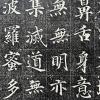 鼻舌身意
無明亦無
集滅道無
波羅蜜多